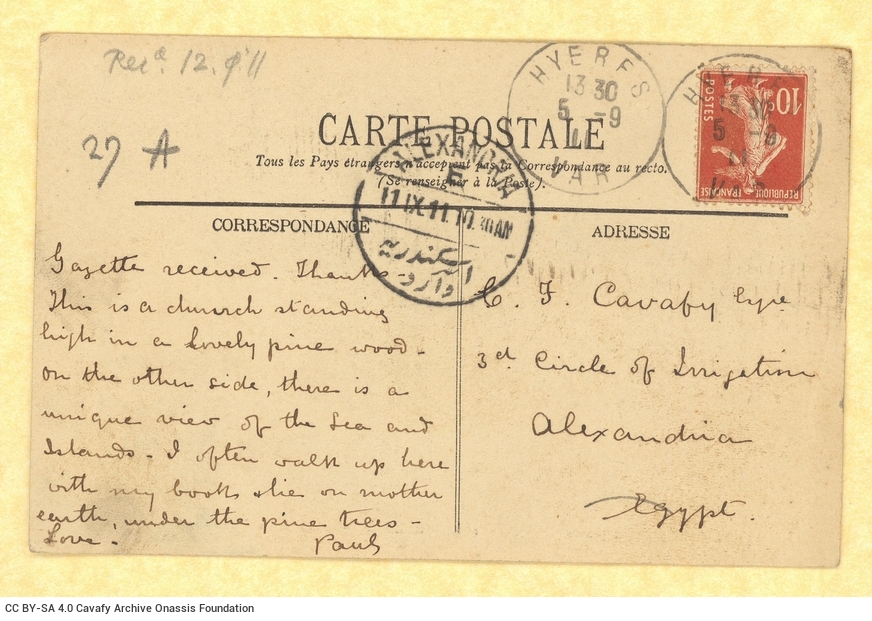 Rec^d. 12.9'11
27 A
CARTE POSTALE
Tous les Pays étrangers n'acceptent pas la Correspondance au recto.
(Se renseigner à la Poste).
HYERES
13 30
5 -9
11
VAR
HYERES
13 30
5 -9
10c
POSTES
REPUBLIQUE FRANÇAISE
ALEXANDRIA
E
11.IX.11.10.30AM
اسكندرية
وارد
CORRESPONDANCE
Gazette received. Thanks
This is a church standing
high in a lovely pine wood -
on the other side, there is a
unique view of the Sea and
Islands - I often walk up here
with my book & lie on mother
earth, under the pine trees -
Love -
Paul
ADRESSE
C. F. Cavafy Esqre
3d. Circle of Irrigation
Alexandria
Egypt.
CC BY-SA 4.0 Cavafy Archive Onassis Foundation